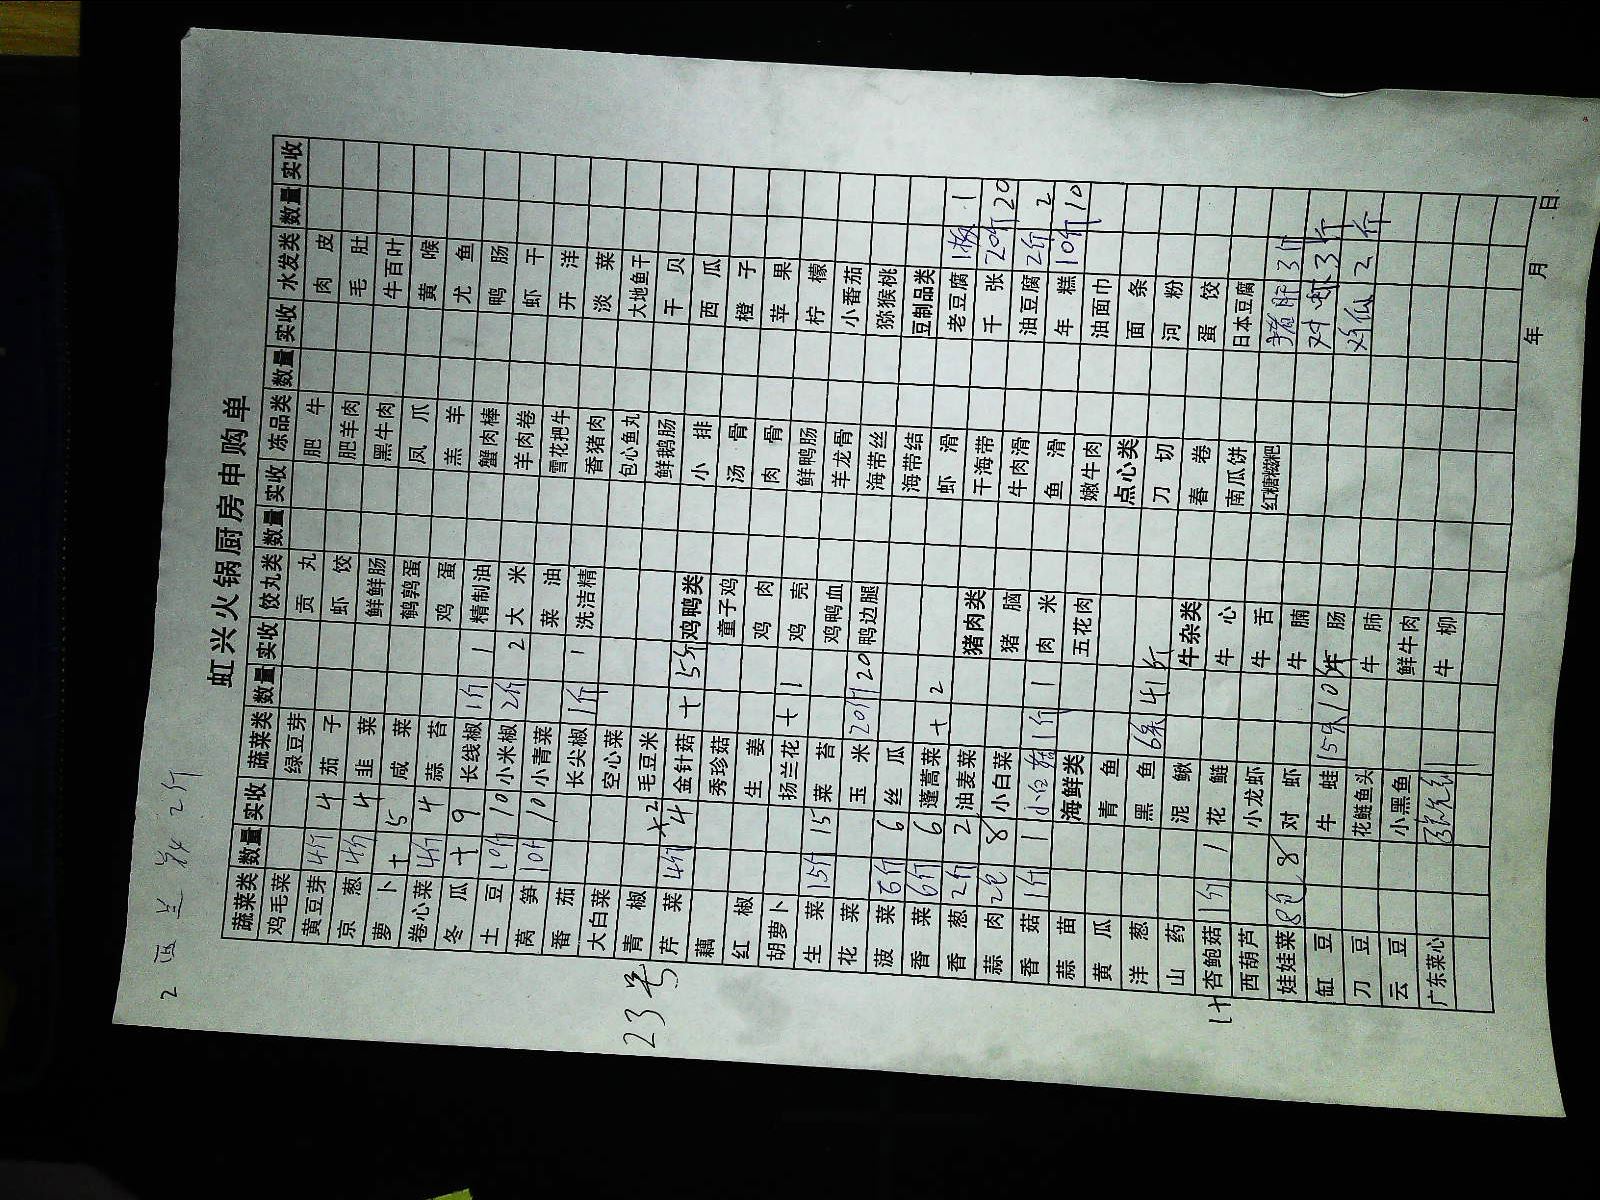 2 西兰花 2斤
虹兴火锅厨房申购单
蔬菜类 数量 实收 蔬菜类 数量 实收 饺丸类 数量 实收 冻品类 数量 实收 水发类 数量 实收
鸡毛菜 绿豆芽 贡丸 肥牛 肉皮
黄豆芽 4斤 4 茄子 虾饺 肥羊肉 毛肚
京葱 4斤 4 韭菜 鲜鲜肠 黑牛肉 牛百叶
萝卜 + 5 咸菜 鹌鹑蛋 凤爪 黄喉
卷心菜 4斤 4 蒜苔 鸡蛋 羔羊 尤鱼
冬瓜 + 9 长线椒 1斤 1 精制油 蟹肉棒 鸭肠
土豆 10斤 10 小米椒 2斤 2 大米 羊肉卷 虾干
莴笋 10斤 10 小青菜 菜油 雪花把牛 开洋
番茄 长尖椒 1斤 1 洗洁精 香猪肉 淡菜
大白菜 空心菜 包心鱼丸 大地鱼干
青椒 +2 毛豆米 鲜鹅肠 干贝
芹菜 4斤 4 金针菇 + 15斤 鸡鸭类 小排 西瓜
藕 秀珍菇 童子鸡 汤骨 橙子
红椒 生姜 鸡肉 肉骨 苹果
胡萝卜 扬兰花 + 1 鸡壳 鲜鸭肠 柠檬
生菜 15斤 15 菜苔 鸡鸭血 羊龙骨 小番茄
花菜 玉米 20斤 20 鸭边腿 海带丝 猕猴桃
菠菜 6斤 6 丝瓜 海带结 豆制品类
香菜 6斤 6 蓬蒿菜 + 2 虾滑 老豆腐 1板 1
香葱 2斤 2 油麦菜 猪肉类 干海带 千张 20斤 20
蒜肉 2包 8 小白菜 猪脑 牛肉滑 油豆腐 2斤 2
香菇 1斤 1 小白菇 1斤 1 肉米 鱼滑 年糕 10斤 10
蒜苗 海鲜类 五花肉 嫩牛肉 油面巾
黄瓜 青鱼 点心类 面条
洋葱 黑鱼 6条 41斤 刀切 河粉
山药 泥鳅 牛杂类 春卷 蛋饺
1+ 杏鲍菇 1斤 1 花鲢 牛心 南瓜饼 日本豆腐
西葫芦 小龙虾 牛舌 红糖糍粑 猪肝 3斤
娃娃菜 8包 8 对虾 牛腩 对虾 3斤
缸豆 牛蛙 15只 10斤 牛肠 2斤
刀豆 花鲢鱼头 牛肺
云豆 小黑鱼 鲜牛肉
广东菜心 牛柳
23号
年 月 日